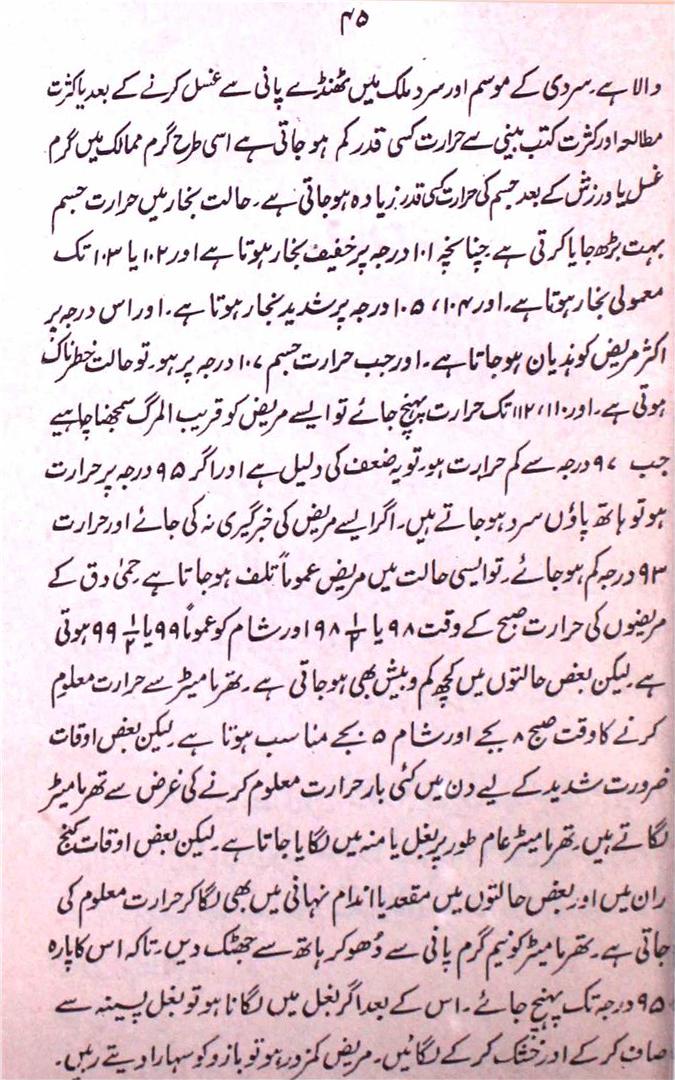 ۴۵
والا ہے۔ سردی کے موسم اور سرد ملک میں ٹھنڈے پانی سے غسل کرنے کے بعد یا کثرت
مطالعہ اور کثرت کتب بینی سے حرارت کسی قدر کم ہو جاتی ہے اسی طرح گرم ممالک میں گرم
غسل یا ورزش کے بعد جسم کی حرارت کسی قدر زیادہ ہو جاتی ہے۔ حالت بخار میں حرارت جسم
بہت بڑھ جایا کرتی ہے چنانچہ ۱۰۱ درجہ پر خفیف بخار ہوتا ہے اور ۱۰۲ یا ۱۰۳ تک
معمولی بخار ہوتا ہے۔ اور ۱۰۴، ۱۰۵ درجہ پر شدید بخار ہوتا ہے۔ اور اس درجہ پر
اکثر مریض کو ہذیان ہو جاتا ہے۔ اور جب حرارت جسم ۱۰۷ درجہ پر ہو۔ تو حالت خطرناک
ہوتی ہے۔ اور ۱۱۰، ۱۱۲ تک حرارت پہنچ جائے تو ایسے مریض کو قریب المرگ سمجھنا چاہیے
جب ۹۷ درجہ سے کم حرارت ہو۔ تو یہ ضعف کی دلیل ہے اور اگر ۹۵ درجہ پر حرارت
ہو تو ہاتھ پاؤں سرد ہو جاتے ہیں۔ اگر ایسے مریض کی خبر گیری نہ کی جائے اور حرارت
۹۳ درجہ کم ہو جائے۔ تو ایسی حالت میں مریض عموماً تلف ہو جاتا ہے حمیٰ دق کے
مریضوں کی حرارت صبح کے وقت ۹۸ یا ۹۸ ۱/۲ اور شام کو عموماً ۹۹ یا ۹۹ ۱/۲ ہوتی
ہے۔ لیکن بعض حالتوں میں کچھ کم و بیش بھی ہو جاتی ہے۔ تھرمامیٹر سے حرارت معلوم
کرنے کا وقت صبح ۸ بجے اور شام ۵ بجے مناسب ہوتا ہے۔ لیکن بعض اوقات
ضرورت شدید کے لیے دن میں کئی بار حرارت معلوم کرنے کی غرض سے تھرمامیٹر
لگاتے ہیں۔ تھرمامیٹر عام طور پر بغل یا منہ میں لگایا جاتا ہے۔ لیکن بعض اوقات کنج
ران میں اور بعض حالتوں میں مقعد یا اندام نہانی میں بھی لگا کر حرارت معلوم کی
جاتی ہے۔ تھرمامیٹر کو نیم گرم پانی سے دھو کر ہاتھ سے جھٹک دیں۔ تاکہ اس کا پارہ
۹۵ درجہ تک پہنچ جائے۔ اس کے بعد اگر بغل میں لگانا ہو تو بغل پسینہ سے
صاف کر کے اور خشک کر کے لگائیں۔ مریض کمزور ہو تو بازو کو سہارا دیتے رہیں۔